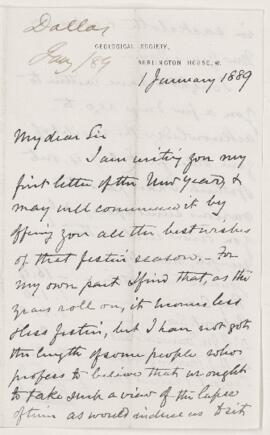 Dallas
Jany/89
GEOLOGICAL SOCIETY,
BURLINGTON HOUSE, W.
1 January 1889
My dear Sir
I am writing you my
first letter of the New Year, &
may well commence it by
offering you all the best wishes
of that festive season. – For
my own part I find that, as the
years roll on, it becomes less
& less festive, but I have not got
the length of some people who
profess to believe that we ought
to take such a view of the lapse
of time as would induce us to sit